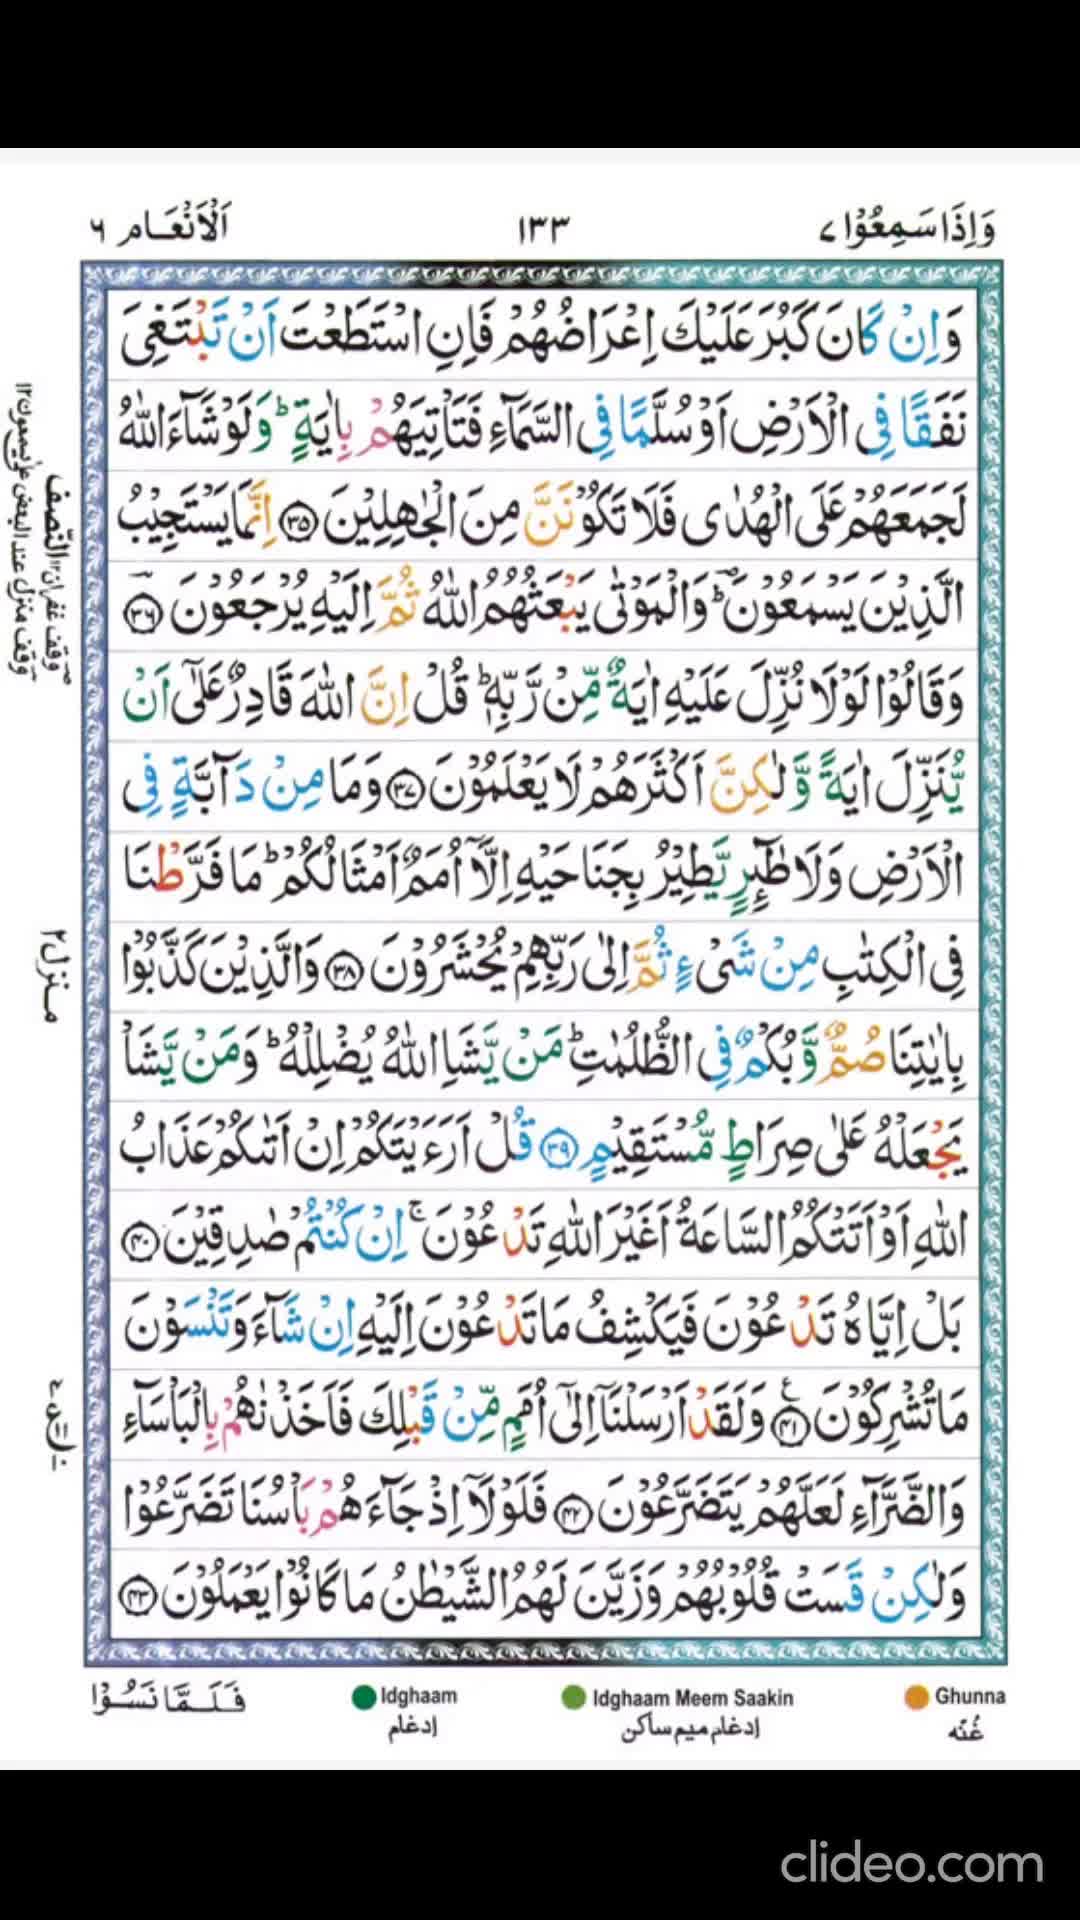 وَاِذَا سَمِعُوْا ٧
١٣٣
اَلْاَنْعَام ٦
وَاِنْ كَانَ كَبُرَ عَلَيْكَ اِعْرَاضُهُمْ فَاِنِ اسْتَطَعْتَ اَنْ تَبْتَغِىَ
نَفَقًا فِى الْاَرْضِ اَوْ سُلَّمًا فِى السَّمَآءِ فَتَاْتِيَهُمْ بِاٰيَةٍ ؕ وَلَوْ شَآءَ اللّٰهُ
لَجَمَعَهُمْ عَلَى الْهُدٰى فَلَا تَكُوْنَنَّ مِنَ الْجٰهِلِيْنَ ٣٥ اِنَّمَا يَسْتَجِيْبُ
الَّذِيْنَ يَسْمَعُوْنَ ؕ وَالْمَوْتٰى يَبْعَثُهُمُ اللّٰهُ ثُمَّ اِلَيْهِ يُرْجَعُوْنَ ٣٦
وَقَالُوْا لَوْلَا نُزِّلَ عَلَيْهِ اٰيَةٌ مِّنْ رَّبِّهٖ ؕ قُلْ اِنَّ اللّٰهَ قَادِرٌ عَلٰٓى اَنْ
يُّنَزِّلَ اٰيَةً وَّلٰكِنَّ اَكْثَرَهُمْ لَا يَعْلَمُوْنَ ٣٧ وَمَا مِنْ دَآبَّةٍ فِى
الْاَرْضِ وَلَا طٰٓئِرٍ يَّطِيْرُ بِجَنَاحَيْهِ اِلَّاۤ اُمَمٌ اَمْثَالُكُمْ ؕ مَا فَرَّطْنَا
فِى الْكِتٰبِ مِنْ شَىْءٍ ثُمَّ اِلٰى رَبِّهِمْ يُحْشَرُوْنَ ٣٨ وَالَّذِيْنَ كَذَّبُوْا
بِاٰيٰتِنَا صُمٌّ وَّبُكْمٌ فِى الظُّلُمٰتِ ؕ مَنْ يَّشَاِ اللّٰهُ يُضْلِلْهُ ؕ وَمَنْ يَّشَاْ
يَجْعَلْهُ عَلٰى صِرَاطٍ مُّسْتَقِيْمٍ ٣٩ قُلْ اَرَءَيْتَكُمْ اِنْ اَتٰىكُمْ عَذَابُ
اللّٰهِ اَوْ اَتَتْكُمُ السَّاعَةُ اَغَيْرَ اللّٰهِ تَدْعُوْنَ ۚ اِنْ كُنْتُمْ صٰدِقِيْنَ ٤٠
بَلْ اِيَّاهُ تَدْعُوْنَ فَيَكْشِفُ مَا تَدْعُوْنَ اِلَيْهِ اِنْ شَآءَ وَتَنْسَوْنَ
مَا تُشْرِكُوْنَ ٤١ ع وَلَقَدْ اَرْسَلْنَاۤ اِلٰٓى اُمَمٍ مِّنْ قَبْلِكَ فَاَخَذْنٰهُمْ بِالْبَاْسَآءِ
وَالضَّرَّآءِ لَعَلَّهُمْ يَتَضَرَّعُوْنَ ٤٢ فَلَوْلَاۤ اِذْ جَآءَهُمْ بَاْسُنَا تَضَرَّعُوْا
وَلٰكِنْ قَسَتْ قُلُوْبُهُمْ وَزَيَّنَ لَهُمُ الشَّيْطٰنُ مَا كَانُوْا يَعْمَلُوْنَ ٤٣
النّصف
وقف غفران ١٢
وقف منزل عند البعض علٰى يسمعون ١٢
منزل ٢
فَلَمَّا نَسُوْا
Idghaam
Idghaam Meem Saakin
Ghunna
إدغام
إدغام ميم ساكن
غُنّه
clideo.com